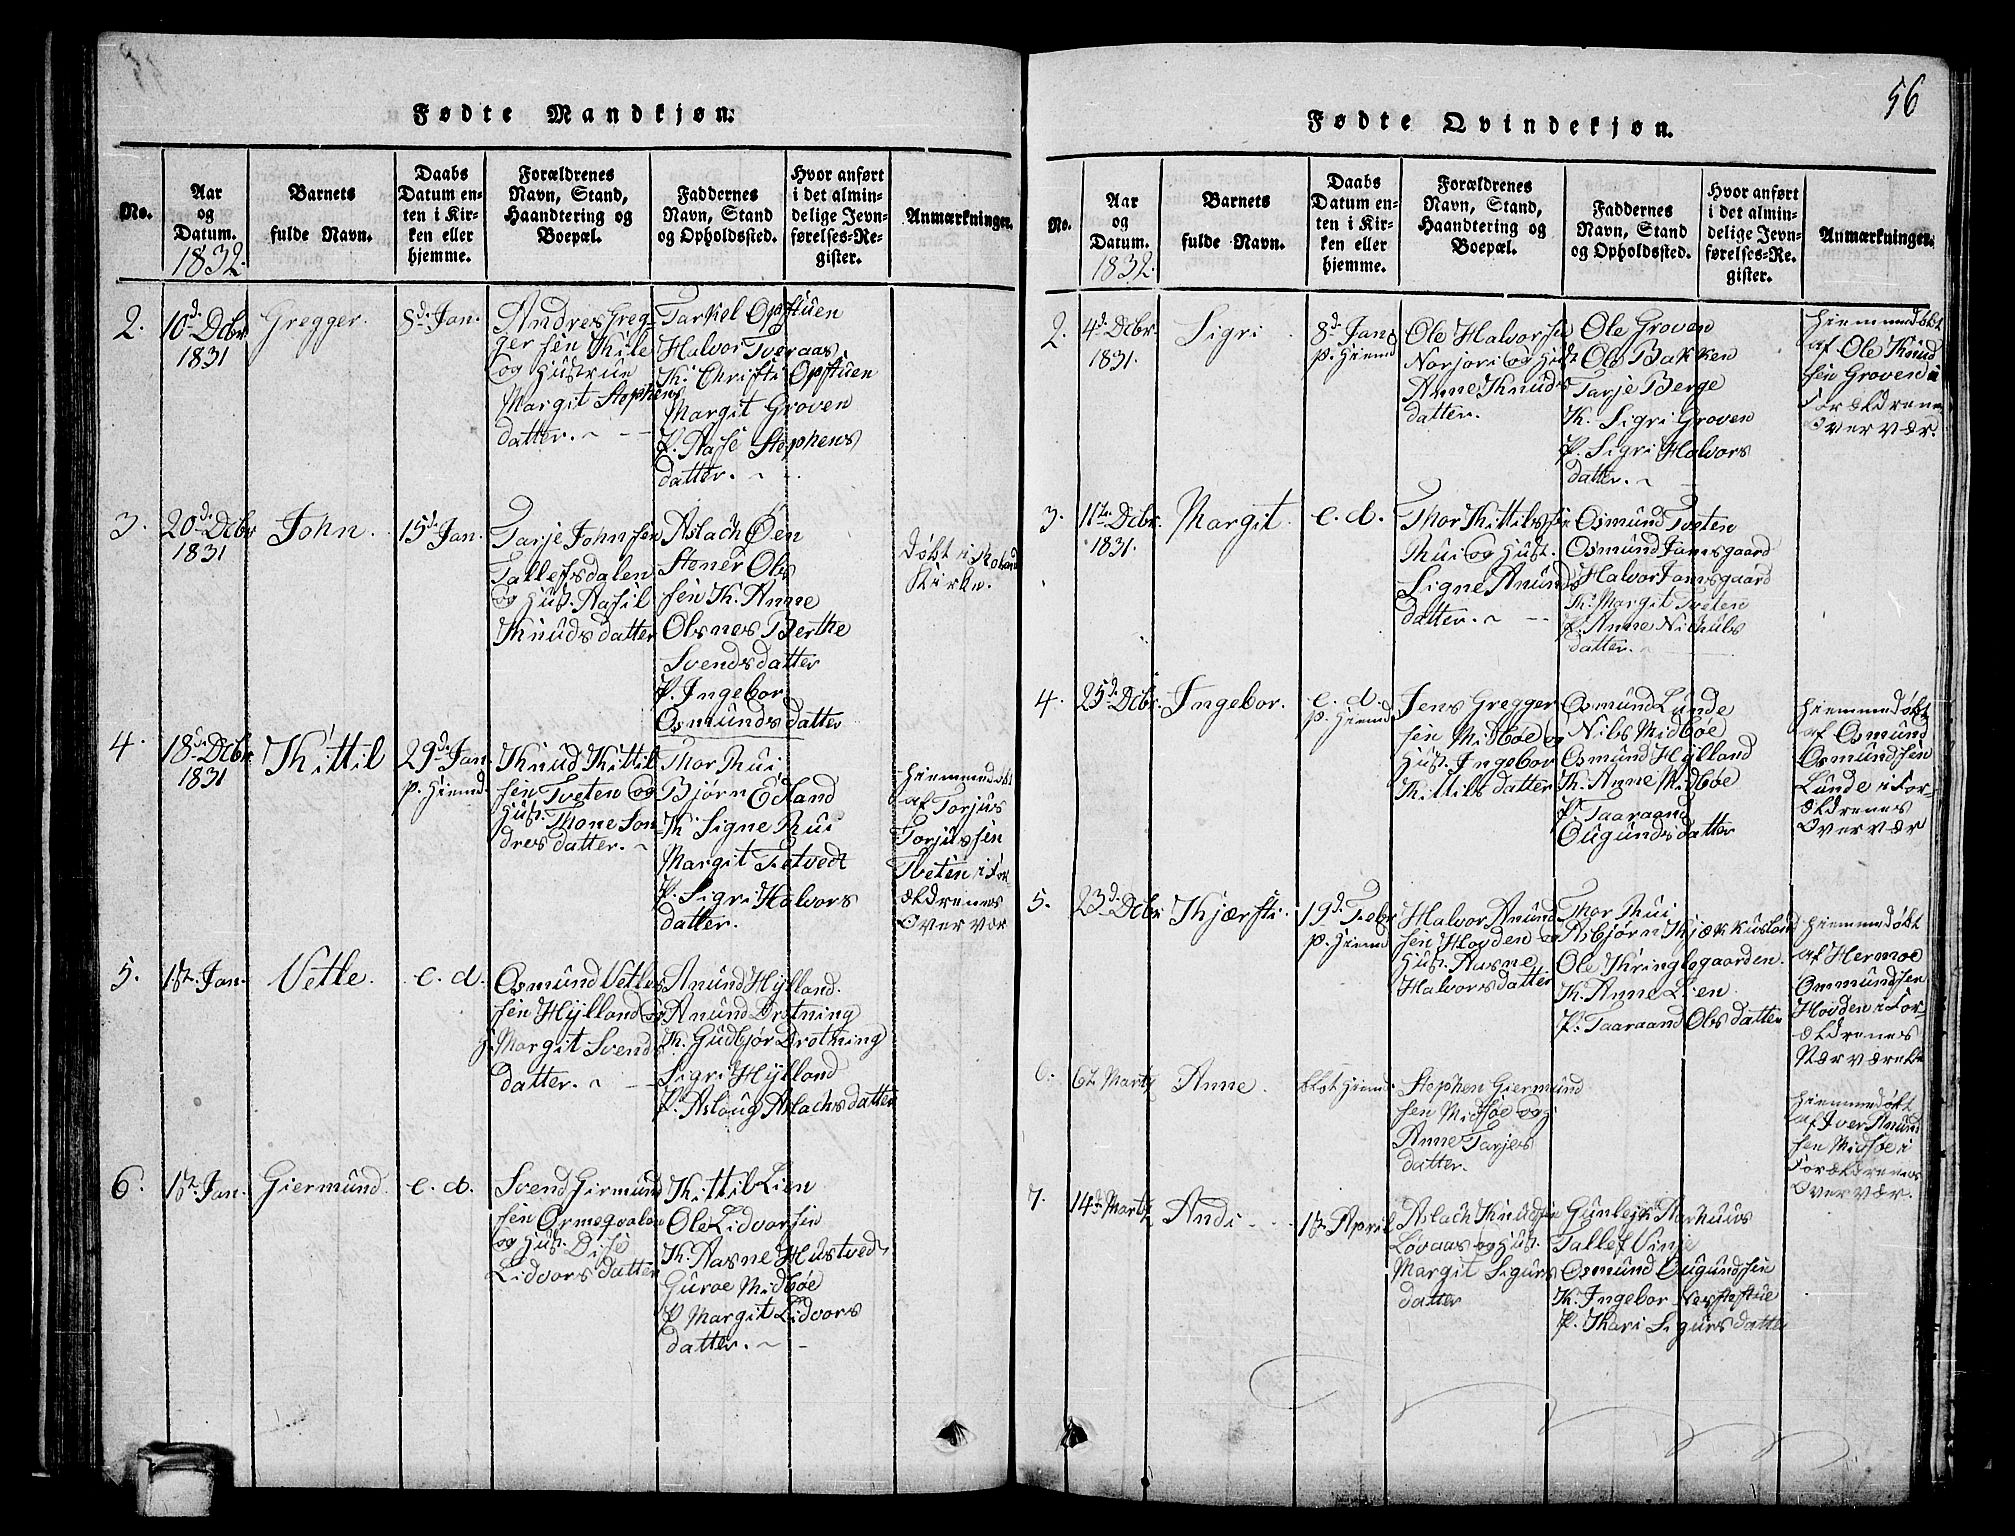 56
Fødte Mandkjøn.
No.
Aar
og
Datum.
1832.
Barnets
fulde Navn.
Daabs
Datum en-
ten i Kir-
ken eller
hjemme.
Forældrenes
Navn, Stand,
Haandtering og
Boepæl.
Faddernes
Navn, Stand
og Opholdssted.
Hvor anført
i det almin-
delige Jevn-
førelses-Re-
gister.
Anmærkninger.
2.
10d Dcbr
1831
Gregger.
8d Jan.
Andres Greg-
ger sen Kile
og Hustrue
Margit Stephens
datter.
Tarkel Opstuen
Halvor Tveraas
K. Christi Opstuen
Margit Groven
P. Aase Stephens
datter.
3.
20d Dcbr
1831
John.
15d Jan.
Tarje Johnsen
Tallefsdalen
og Hust. Aasil
Knudsdatter
Aslach Øen
Stener Ols
sen K. Anne
Olsnes Berthe
Svendsdatter
P. Ingebor
Osmundsdatter
Døbt i
Kirke.
4.
18d Dcbr
1831
Kittil
29d Jan
p. Hiemd.
Knud Kittil
sen Tveten og
Hust. Thone Son
dresdatter.
Thor Rui
Bjørn Edland
K. Signe Rui
Margit Tietvedt
P. Sigri Halvors
datter.
Hiemmedøbt
af Torjus
Torjussen
Tveten i For-
ældrenes
Overvær
5.
1st. Jan.
Vetle.
e. d.
Osmund Vetles
sen Hylland og
Margit Svends
datter.
Anund Hylland.
Anund Drotning
K. Gudbjør Drotning
Sigri Hylland
P. Aslaug Aslachsdatter
6.
1st. Jan.
Giermund.
e. d.
Svend Girmund
sen Ormegvalen
og Hust. Dise
Lidvorsdatter
Kittil Lien
Ole Lidvorsen
K. Aasne Hustvedt
Guroe Midbøe
P Margit Lidvors
datter.
Fødte Qvindekjøn.
No.
Aar
og
Datum.
1832.
Barnets
fulde Navn.
Daabs
Datum en-
ten i Kir-
ken eller
hjemme.
Forældrenes
Navn, Stand,
Haandtering og
Boepæl.
Faddernes
Navn, Stand
og Opholdssted.
Hvor anført
i det almin-
delige Jevn-
førelses-Re-
gister.
Anmærkninger.
2.
4d Dcbr.
1831.
Sigri
8d Jan
p. Hiemd
Ole Halvorsen
Norjori og Hust
Anne Knuds
datter.
Ole Groven
Ole Bakken
Tarje Berge
K. Sigri Groven
P. Sigri Halvors
datter.
Hiemmedøbt
af Ole Knud
sen Groven i
Forældrenes
Overvær.
3.
11te Dcbr.
1831.
Margit.
e. d.
Thor Kittilssen
Rui og Hust.
Signe Anunds
datter.
Osmund Tveten
Osmund Jamsgaard
Halvor Jamsgaard
K. Margit Tveten
P. Anne Nichuls
datter.
4.
25d Dcbr.
Ingebor.
e. d.
p. Hiemd
Jens Gregger
sen Midbøe og
Hust. Ingebor
Kittilsdatter
Osmund Lunde
Nils Midbøe
Osmund Hylland
K. Anne Midbøe
P. Taaraand
Ougundsdatter
Hiemmedøbt
af Osmund
Osmundsen
Lunde i For-
ældrenes
Overvær
5.
23d Dcbr
Kjærsti.
19d Febr
p. Hiemd
Halvor Anund
sen Hovden og
Hust. Aasne
Halvorsdatter
Thor Rui
Asbjørn
Ole Kringlegaarden.
K. Anne Lien
P. Taaraand Olsdatter
Hiemmedøbt
af Hermoe
Ommundsen
Hovden i For-
ældrenes
Nærværelse
6.
6te Marty
Anne.
Hiemd.
Stephen Giermund
sen Midbøe og
Anne Tarjes
datter.
Hiemmedøbt
af Iver Anund
sen Midbøe i
Forældrenes
Overvær.
7.
14de Marty
Andi
1st. April
Aslach Knudsen
Løvaas og Hust.
Margit Sigurs
datter
Gunlejk Aarhuus
Tallef Vinje
Osmund Ougundsen
K. Ingebor Nerstestue
P. Kari Sigursdatter